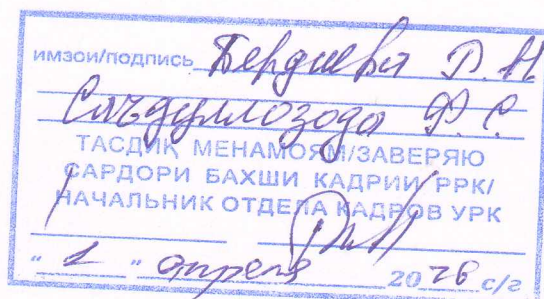 имзои/подпись Бердиева Д. Н.
Саъдуллозода Ф. С.
ТАСДИҚ МЕНАМОЯМ/ЗАВЕРЯЮ
САРДОРИ БАХШИ КАДРИИ РРК/
НАЧАЛЬНИК ОТДЕЛА КАДРОВ УРК
" 1 " апреля 2026 с/г